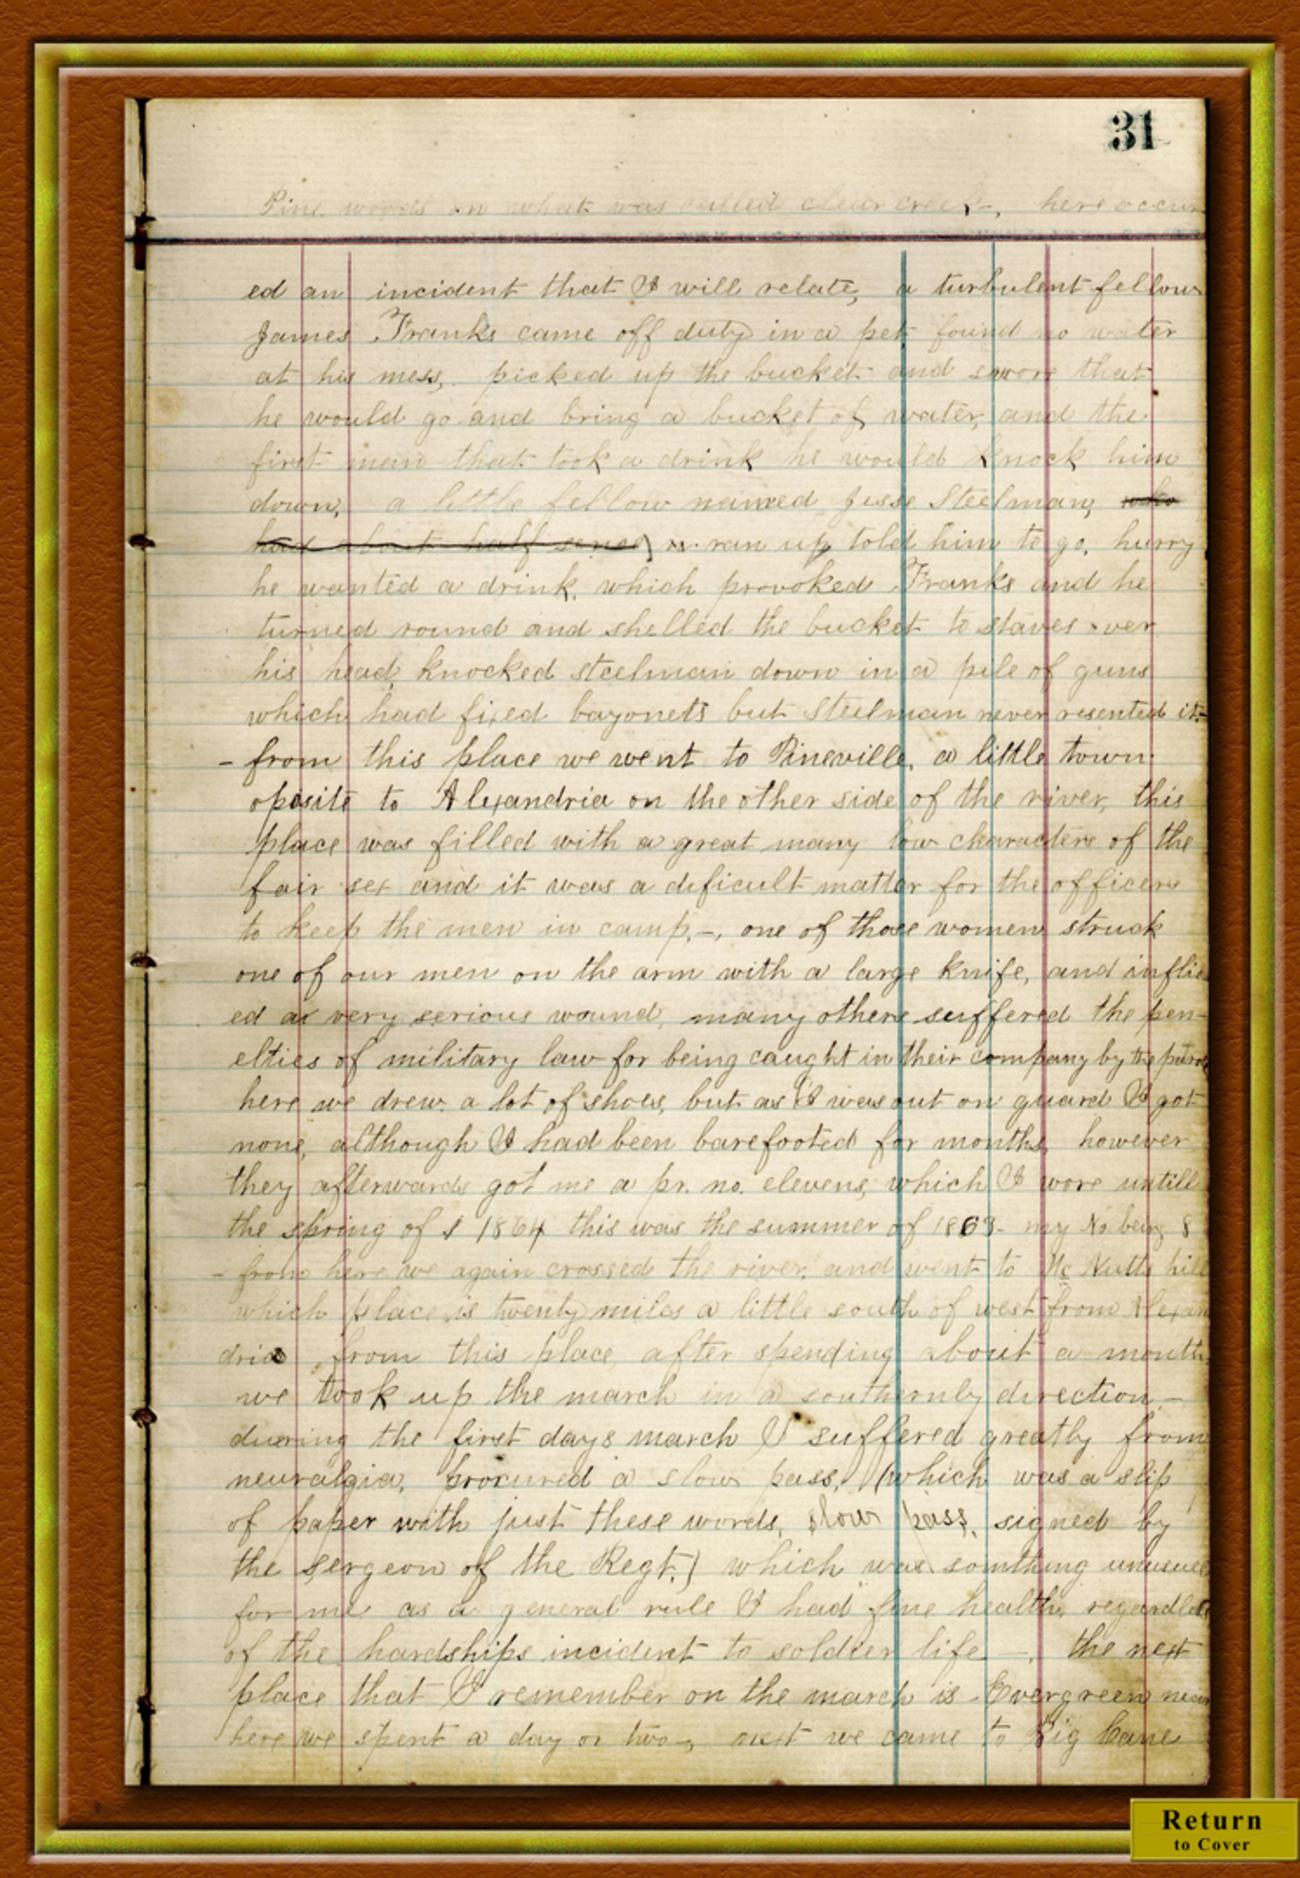 31
Pine woods on what was called clear creek, here occur
ed an incident that I will relate, a turbulent fellow
James Franks came off duty in a pet found no water
at his mess, picked up the bucket and swore that
he would go and bring a bucket of water, and the
first man that took a drink he would knock him
down, a little fellow named Jesse Steelman, who
had about half sense) ran up told him to go, hurry
he wanted a drink, which provoked Franks and he
turned round and shelled the bucket to staves over
his head knocked steelman down in a pile of guns
which had fixed bayonets but Steelman never resented it-
- from this place we went to Pineville, a little town
oposite to Alexandria on the other side of the river, this
place was filled with a great many low characters of the
fair sex and it was a dificult matter for the officers
to keep the men in camp,-, one of those women struck
one of our men on the arm with a large knife, and inflic
ed a very serious wound, many others suffered the pen-
elties of military law for being caught in their company by the patrol
here we drew a lot of shoes, but as I was out on guard I got
none, although I had been barefooted for months, however
they afterwards got me a pr. no. elevens, which I wore untill
the spring of 1864 this was the summer of 1863- my No being 8
- from here we again crossed the river, and went to Mc Nutts hill
which place is twenty miles a little south of west from Alexan
dria from this place after spending about a month
we took up the march in a southernly direction -
duering the first days march I suffered greatly from
neuralgia, procured a slow pass, (which was a slip
of paper with just these words, slow pass, signed by
the sergeon of the Regt.) which was somthing unusual
for me as a general rule I had fine health, regardless
of the hardships incident to soldier life -, the next
place that I remember on the march is Evergreen near
here we spent a day or two -, next we came to Big Cane
Return
to Cover